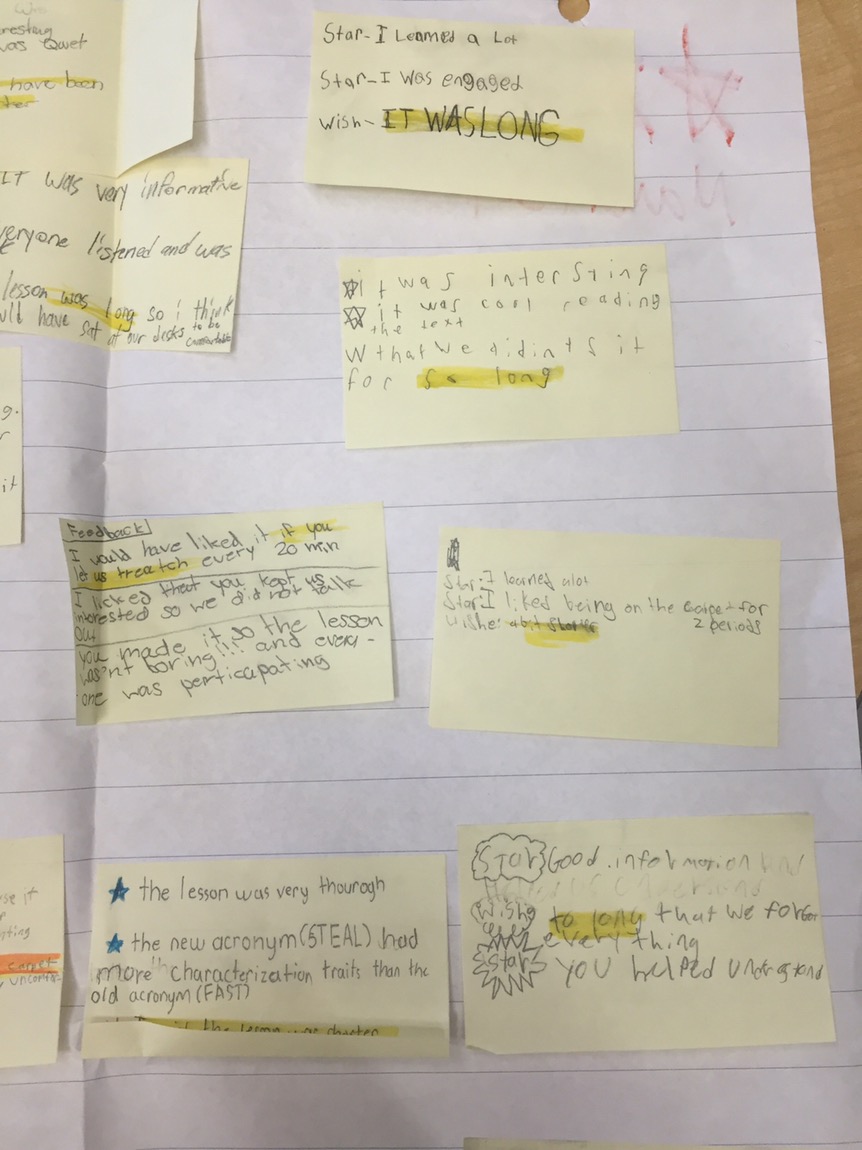 was Quiet
have been
IT was very informative
everyone listened and was
lesson was long so i think
have sat at our desks to be comfortable
g.
r
it
Star-I Learned a Lot
Star-I was engaged
Wish-IT WAS LONG
it was intersting
it was cool reading
the text
W that we didint sit
for so long
Feedback
I would have liked it if you
let us treatch every 20 min
I licked that you kept us
interested so we did not talk
out
you made it so the lesson
wasn't boring!!! and every-
one was perticapating
Star: I learned alot
Star I liked being on the carpet for
2 periods
wishe: a bit shorter
carpet
the lesson was very thourogh
the new acronym (STEAL) had
"more" characterization traits than the
old acronym (FAST)
the lesson was shorter
Star Good information
Wish to long that we forgot
every thing
Star you helped understand